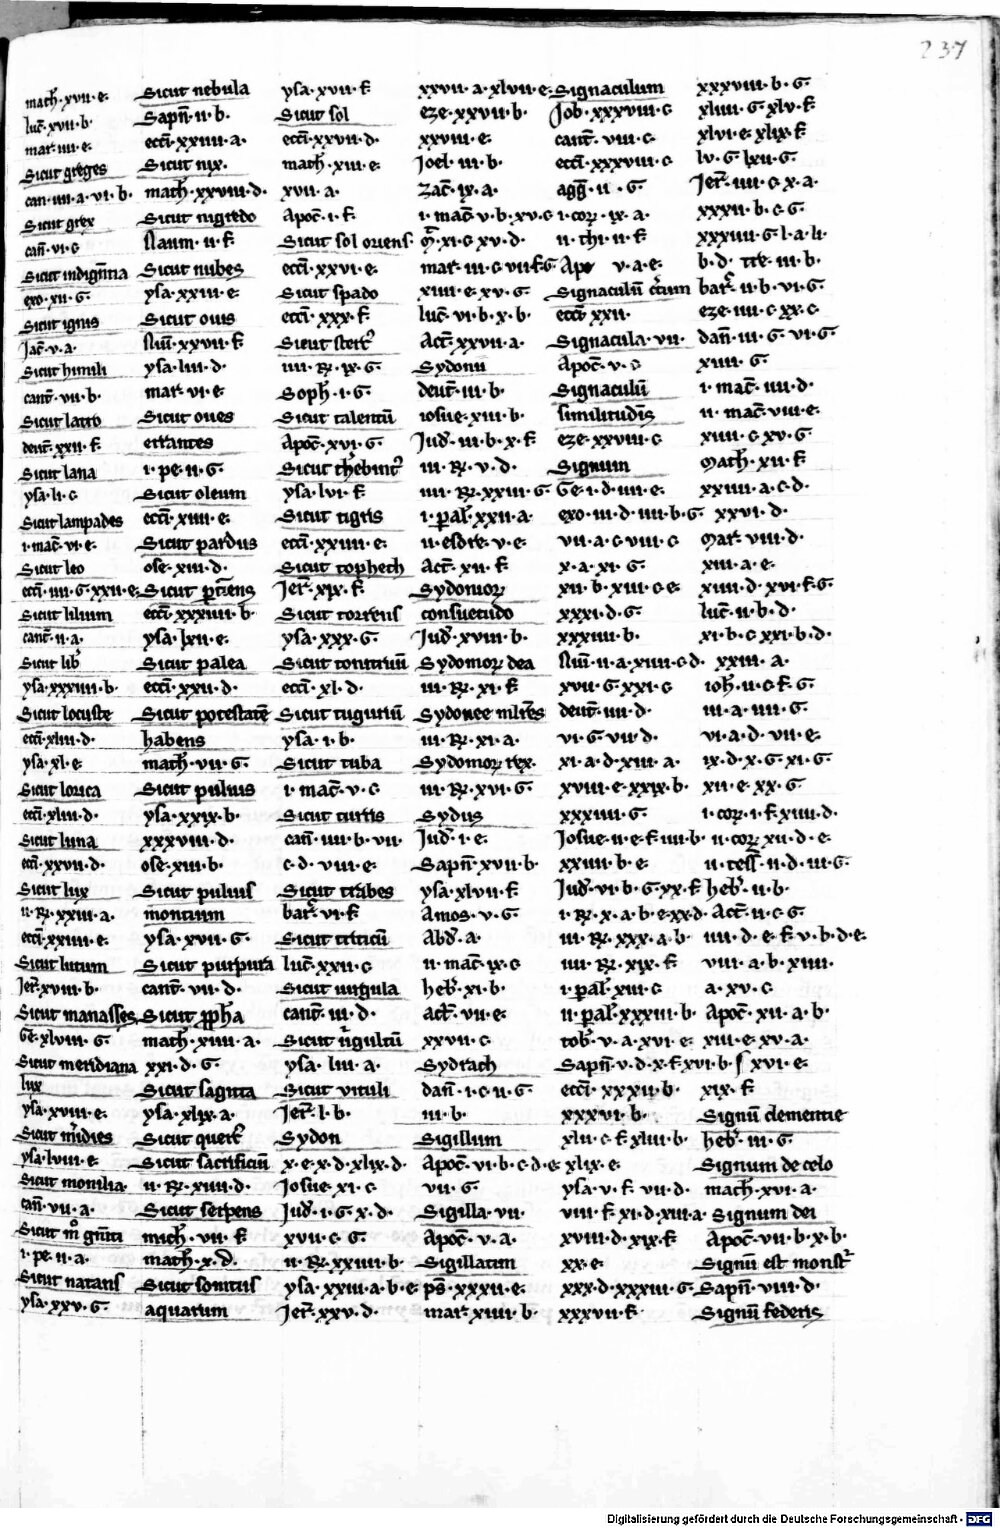 237
math̅·xvii·e·
luc̅·xvii·b·
mar̅·iiii·e·
Sicut greges
can·iiii·a·vi·b·
Sicut grex
can̅·vi·c
Sicut indign̅tia
exo·xii·G·
Sicut ignis
Jac̅·v·a·
Sicut himili
cant̅·vii·b·
Sicut latro
deut̅·xxii·f
Sicut lana
ysa·li·c
Sicut lampades
i·mac̅·vi·e·
Sicut leo
ecci̅·iiii·G·xxii·e·
Sicut lilium
cant̅·ii·a·
Sicut lib̅
ysa·xxxiiii·b·
Sicut locuste
ecci̅·xliii·d·
ysa·xl·e·
Sicut lorica
ecci̅·xliii·d·
Sicut luna
ecci̅·xxvii·d·
Sicut lux
ii·R̅·xxiii·a·
ecci̅·xxiiii·e·
Sicut lutum
Jer̅·xviii·b·
Sicut manasses
Ge̅·xlviii·G·
Sicut meridiana
lux
ysa·xviii·e·
Sicut m̅idies
ysa·lviii·e·
Sicut monilia
can̅·vii·a·
Sicut m̊ gn̅iti
i·pe·ii·a·
Sicut natans
ysa·xxv·G·
Sicut nebula
Sapn̅·ii·b·
ecci̅·xxiiii·a·
Sicut nix·
math̅·xxviii·d·
Sicut nigredo
Naum·ii·f·
Sicut nubes
ysa·xxiii·e·
Sicut ouis
Nu̅·xxvii·f
ysa·liii·d·
mar̅·vi·e·
Sicut oues
errantes
i·pe·ii·G·
Sicut oleum
ecci̅·xiiii·e·
Sicut pardus
ose·xiii·d·
Sicut pt̅iens
ecci̅·xxxiiii·b·
ysa·lxii·e·
Sicut palea
ecci̅·xxii·d·
Sicut potestate̅
habens
math̅·vii·G·
Sicut puluis
ysa·xxix·b·
xxxviii·d·
ose·xiii·b·
Sicut puluis
montium
ysa·xvii·G·
Sicut purpura
cant̅·vii·d·
Sicut pp̅ha
math̅·xiiii·a·
xxi·d·G·
Sicut sagitta
ysa·xlix·a·
Sicut quer̅
Sicut sacrificiu̅
ii·R̅·xiiii·d·
Sicut serpens
mich̅·vii·f
math̅·x·d·
Sicut sonitus
aquarum
ysa·xvii·f
Sicut sol
ecci̅·xxvii·d·
math·xiii·e
xvii·a·
Apoc̅·i·f·
Sicut sol oriens·
ecci̅·xxvi·e·
Sicut spado
ecci̅·xxx·f
Sicut ster̅
iiii·R̅·ix·G·
Soph̅·i·G·
Sicut talentu̅
Apoc̅·xvi·G·
Sicut therebint̅
ysa·lvi·f
Sicut tigris
ecci̅·xxiiii·e·
Sicut tophech
Jer̅·xix·f
Sicut torrens
ysa·xxx·G·
Sicut tonitruu̅
ecci̅·xl·d·
Sicut tuguriu̅
ysa·i·b·
Sicut tuba
i·mac̅·v·c
Sicut turris
can̅·iiii·b·vii·
c·d·viii·e·
Sicut trabes
bar̅·vi·f
Sicut triticu̅
luc̅·xxii·c
Sicut uirgula
cant̅·iii·d·
Sicut u̅gultu̅
ysa·liii·a·
Sicut vituli
Jer̅·l·b·
Sydon
x·e·x·d·xlix·d·
Josue·xi·c
Jud̅·i·G·x·d·
xvii·c·G·
ii·R̅·xxiiii·b·
ysa·xxiii·a·b·e·
Jer̅·xxv·d·
xxvii·a·xlvii·e·
eze·xxvii·b·
xxviii·e·
Joel·iii·b·
zac̅·ix·a·
i·mac̅·v·b·xv·c
m̅·xi·c·xv·d·
mar̅·iii·c·vii·f·G·
xiiii·e·xv·G·
luc̅·vi·b·x·b·
Act̅·xxvii·a·
Sydonii
deut̅·iii·b·
iosue·xiii·b·
Jud̅·iii·b·x·f
iii·R̅·v·d·
iiii·R̅·xxiii·G·
i·pal̅·xxii·a·
ii·esdre·v·e·
Act̅·xii·f
Sydonioꝝ
consuetudo
Jud̅·xviii·b·
Sydonioꝝ dea
iii·R̅·xi·f
Sydonee ml̅res
iii·R̅·xi·a·
Sydonioꝝ rex·
iii·R̅·xvi·G·
Sydus
Jud̅·i·e·
Sapn̅·xvii·b·
ysa·xlvii·f
Amos·v·G·
Abd̅·a·
ii·mac̅·ix·c
heb̅·xi·b·
act̅·vii·e·
xxvii·c
Sydrach
dan̅·i·c·ii·G·
iii·b·
Sigillum
Apoc̅·vi·b·c·d·e·
vii·G·
Sigilla·vii·
Apoc̅·v·a·
Sigillatim
ps̅·xxxii·e·
mar̅·xiiii·b·
Signaculum
Job·xxxviii·c
cant̅·viii·c·
ecci̅·xxxviii·c
agg̅·ii·G·
i·coꝝ·ix·a·
ii·thi·ii·f·
Apo v·a·e·
Signaculu̅ c̅tum
ecci̅·xxii·
Signacula·vii·
Apoc̅·v·c
Signaculu̅
similitudi̅s
eze·xxviii·c
Signum
Ge·i·d·iiii·e·
exo·iii·d·iiii·b·G·
vii·a·c·viii·c·
x·a·xi·G·
xii·b·xiii·c·e·
xxxi·d·G·
xxxiiii·b·
Nu̅·ii·a·xiiii·c·d·
xvii·G·xxi·c
deut̅·iiii·d·
vi·G·vii·d·
xi·a·d·xiii·a·
xviii·e·xxix·b·
xxxiiii·G·
Josue·ii·e·f·iiii·b·
xxiiii·b·e·
Jud̅·vi·b·G·xx·f
i·R̅·x·a·b·e·xx·d·
iii·R̅·xxx·a·b·
iiii·R̅·xix·f
i·pal̅·xiii·c
ii·pal̅·xxxiii·b·
tob̅·v·a·xvi·e·
Sapn̅·v·d·x·f·xvi·b·
ecci̅·xxxii·b·
xxxvi·b·
xlii·c·f·xliii·b·
xlix·e·
ysa·v·f·vii·d·
viii·f·xi·d·xiii·a·
xviii·d·xix·f
xx·e·
xxx·d·xxxiii·G·
xxxvii·f·
xxxviii·b·G·
xliiii·G·xlv·f
xlvi·e·xlix·f
lv·G·lxii·G·
Jer̅·iiii·c·x·a·
xxxii·b·c·G·
xxxiiii·G·l·a·li·
b·d·tre·iii·b·
bar̅·ii·b·vi·G·
eze·iiii·c·xx·c·
dan̅·iii·G·vi·G·
xiiii·G·
i·mac̅·iiii·d·
ii·mac̅·viii·e·
xiiii·c·xv·G·
Math̅·xii·f
xxiiii·a·c·d·
xxvi·d·
Mar̅·viii·d·
xiii·a·e·
xiiii·d·xvi·f·G·
luc̅·ii·b·d·
xi·b·c·xxi·b·d·
xxiii·a·
ioh̅·ii·c·f·G·
iii·a·iiii·G·
vi·a·d·vii·e·
ix·d·x·G·xi·G·
xii·e·xx·G·
i·coꝝ·i·f·xiiii·d·
ii·coꝝ·xii·d·e·
ii·tess̅·ii·d·iii·G·
heb̅·ii·b·
Act̅·ii·c·G·
iiii·d·e·f·v·b·d·e·
viii·a·b·xiiii·
a·xv·c·
Apoc̅·xii·a·b·
xiii·e·xv·a·
xvi·e·
xix·f
Signu̅ clementie
heb̅·iii·G·
Signum de celo
math̅·xvi·a·
Signum dei
Apoc̅·vii·b·x·b·
Signu̅ est monst̅
Sapn̅·viii·d·
Signu̅ federis
Digitalisierung gefördert durch die Deutsche Forschungsgemeinschaft - DFG